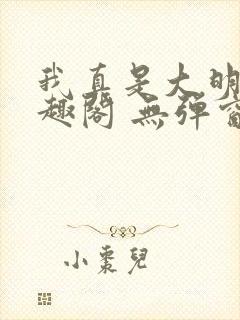 我真是大明
趣閣 無彈窗
小棗兒